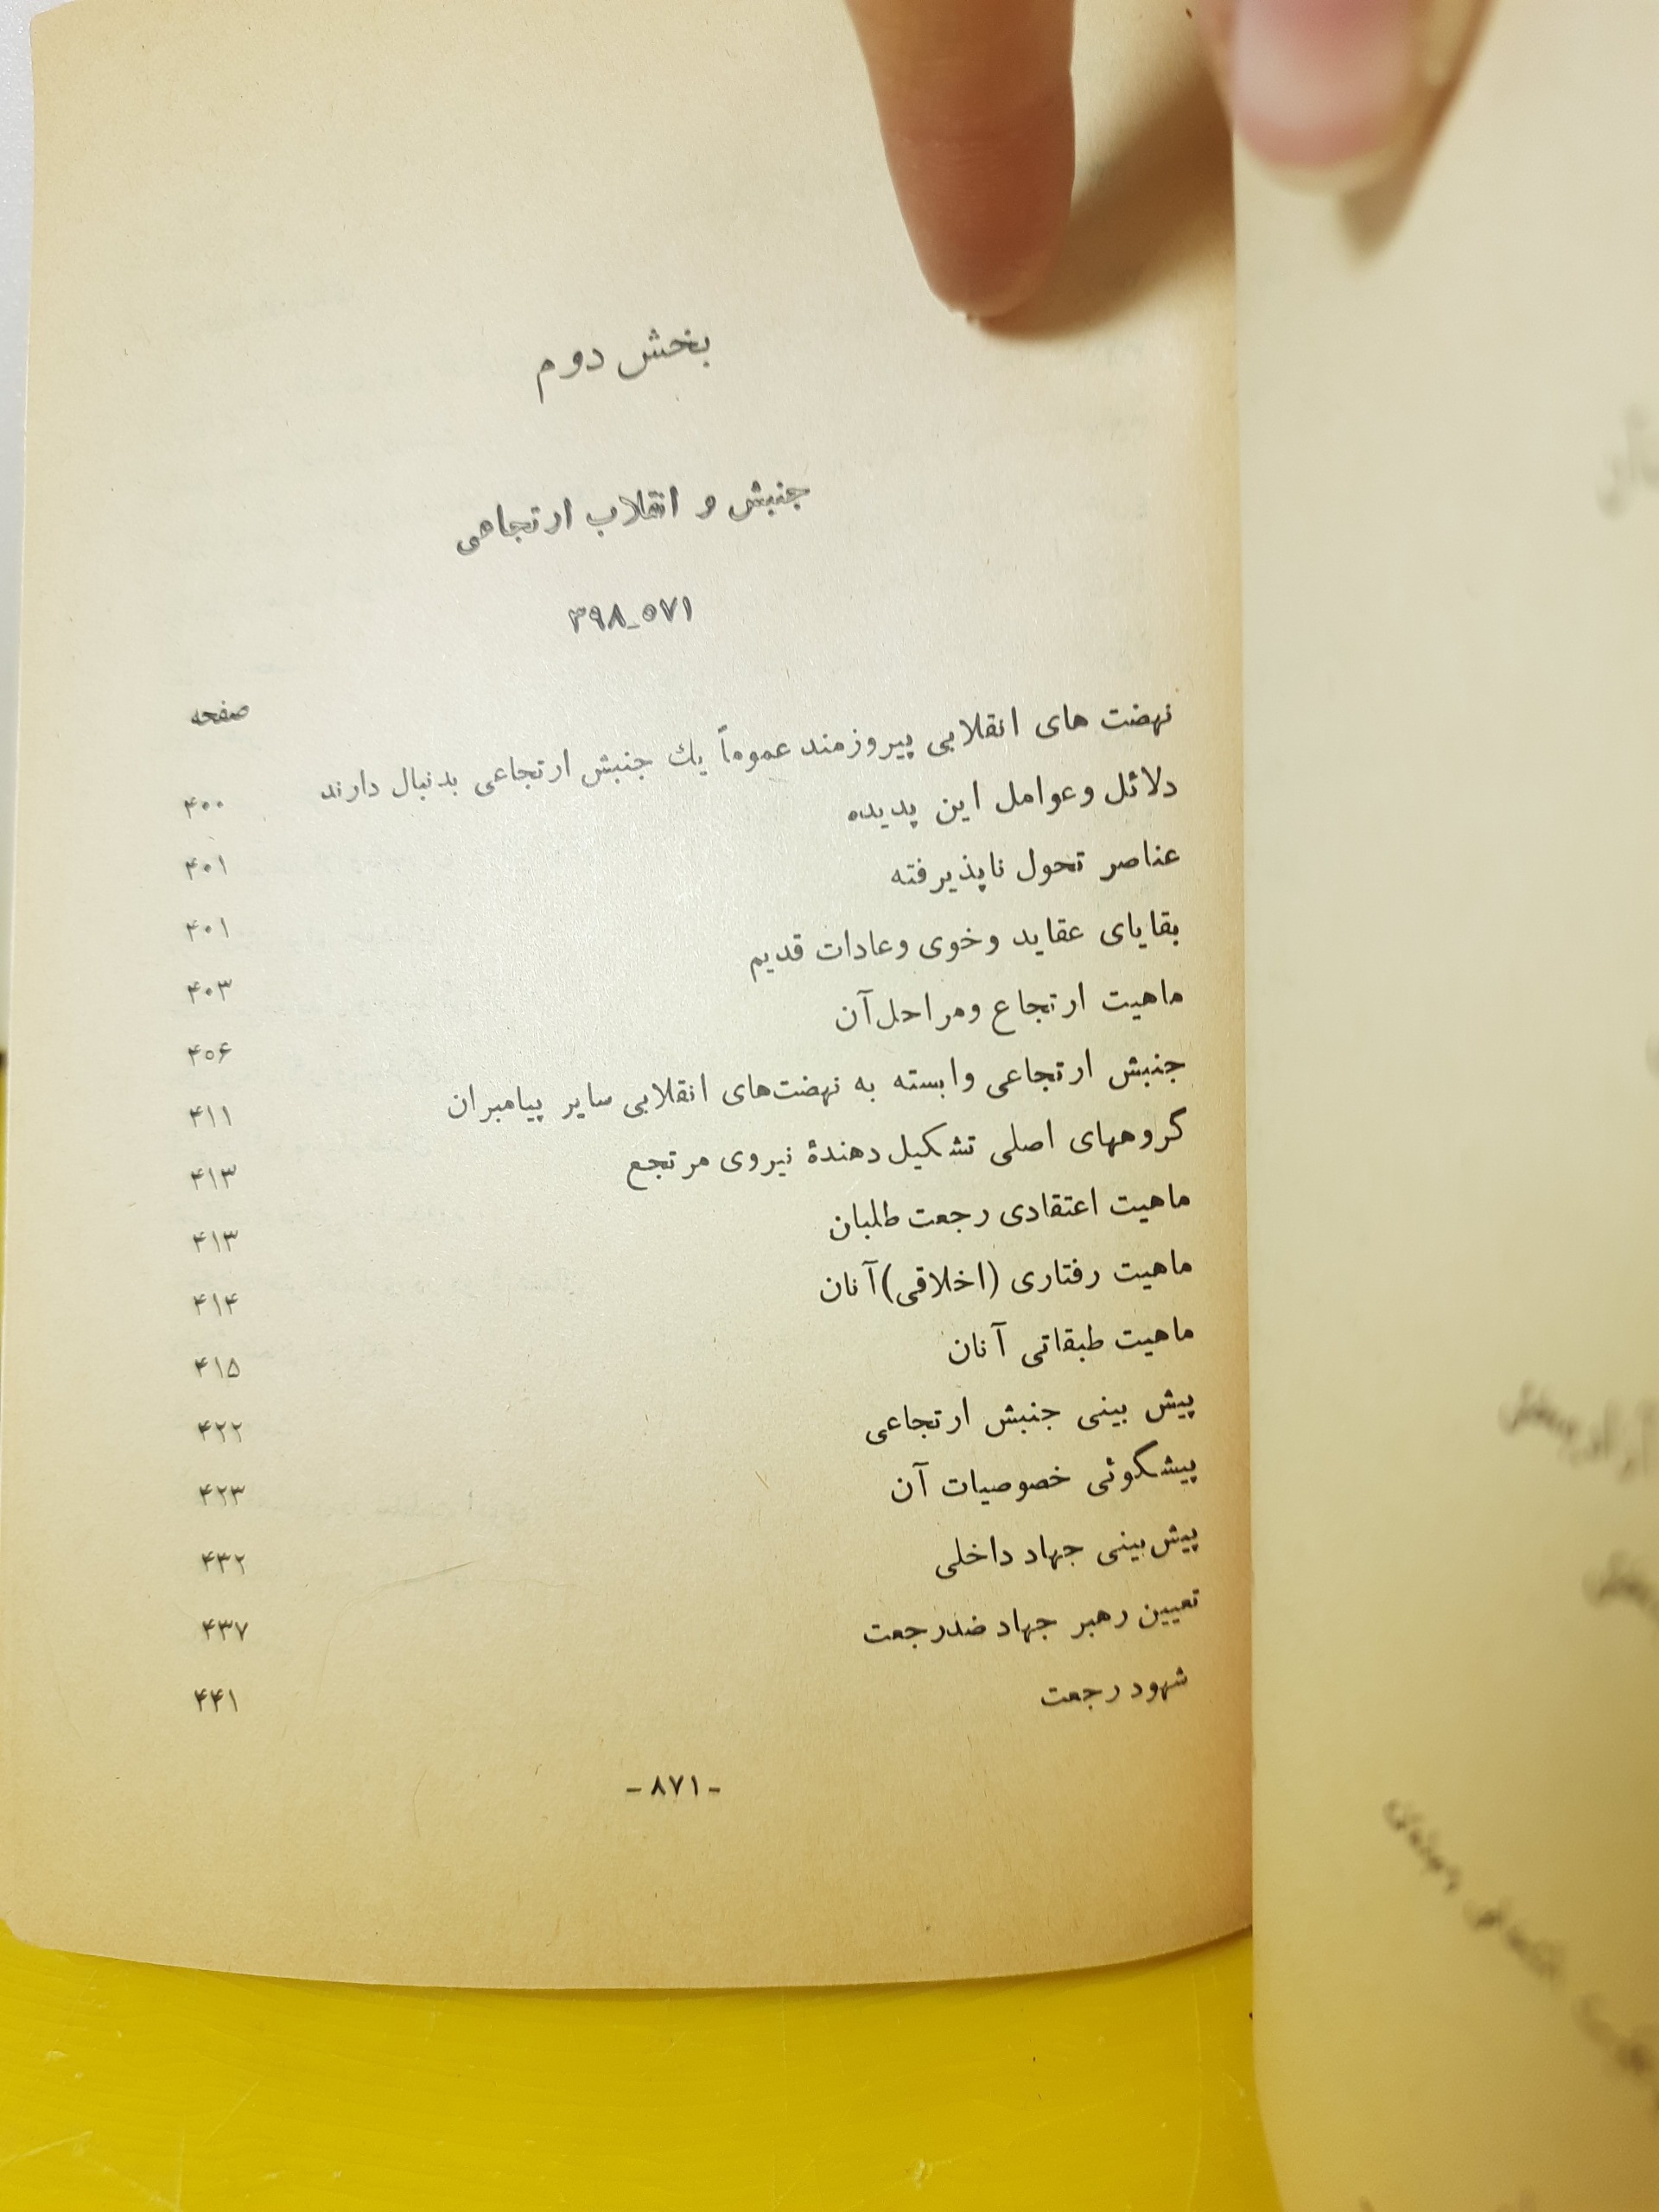 بخش دوم
جنبش و انقلاب ارتجاعی
۳۹۸_۵۷۱
صفحه
نهضت های انقلابی پیروزمند عموماً یك جنبش ارتجاعی بدنبال دارند ۴۰۰
دلائل وعوامل این پدیده ۴۰۱
عناصر تحول ناپذیرفته ۴۰۱
بقایای عقاید وخوی وعادات قدیم ۴۰۳
ماهیت ارتجاع ومراحل‌آن ۴۰۶
جنبش ارتجاعی وابسته به نهضت‌های انقلابی سایر پیامبران ۴۱۱
گروههای اصلی تشکیل‌دهندهٔ نیروی مرتجع ۴۱۳
ماهیت اعتقادی رجعت‌طلبان ۴۱۳
ماهیت رفتاری (اخلاقی)آنان ۴۱۴
ماهیت طبقاتی آنان ۴۱۵
پیش بینی جنبش ارتجاعی ۴۲۲
پیشگوئی خصوصیات آن ۴۲۳
پیش‌بینی جهاد داخلی ۴۳۲
تعیین رهبر جهاد ضدرجعت ۴۳۷
شهود رجعت ۴۴۱
-۸۷۱-